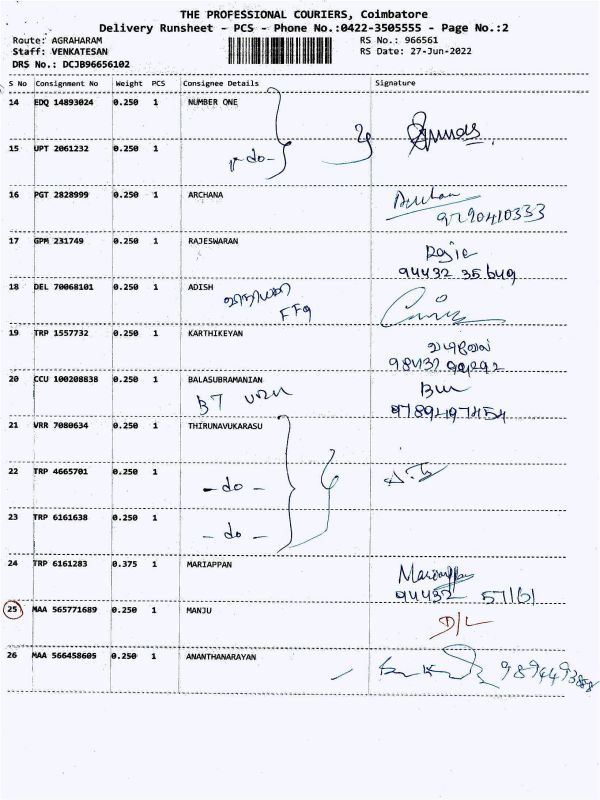 THE PROFESSIONAL COURIERS, Coimbatore
Delivery Runsheet - PCS - Phone No.:0422-3505555 - Page No.:2
Route: AGRAHARAM RS No.: 966561
Staff: VENKATESAN RS Date: 27-Jun-2022
DRS No.: DCJB96656102
S No Consignment No Weight PCS Consignee Details Signature
14 EDQ 14893024 0.250 1 NUMBER ONE
15 UPT 2061232 0.250 1
-do-
16 PGT 2828999 0.250 1 ARCHANA
9290410333
17 GPM 231749 0.250 1 RAJESWARAN
Rajie
94432 35649
18 DEL 70068101 0.250 1 ADISH
19 TRP 1557732 0.250 1 KARTHIKEYAN
20 CCU 100208838 0.250 1 BALASUBRAMANIAN
B7
9789497454
21 VRR 7080634 0.250 1 THIRUNAVUKARASU
22 TRP 4665701 0.250 1
- do -
23 TRP 6161638 0.250 1
- do -
24 TRP 6161283 0.375 1 MARIAPPAN
Mariappan
94432 57161
25 MAA 565771689 0.250 1 MANJU
D/L
26 MAA 566458605 0.250 1 ANANTHANARAYAN